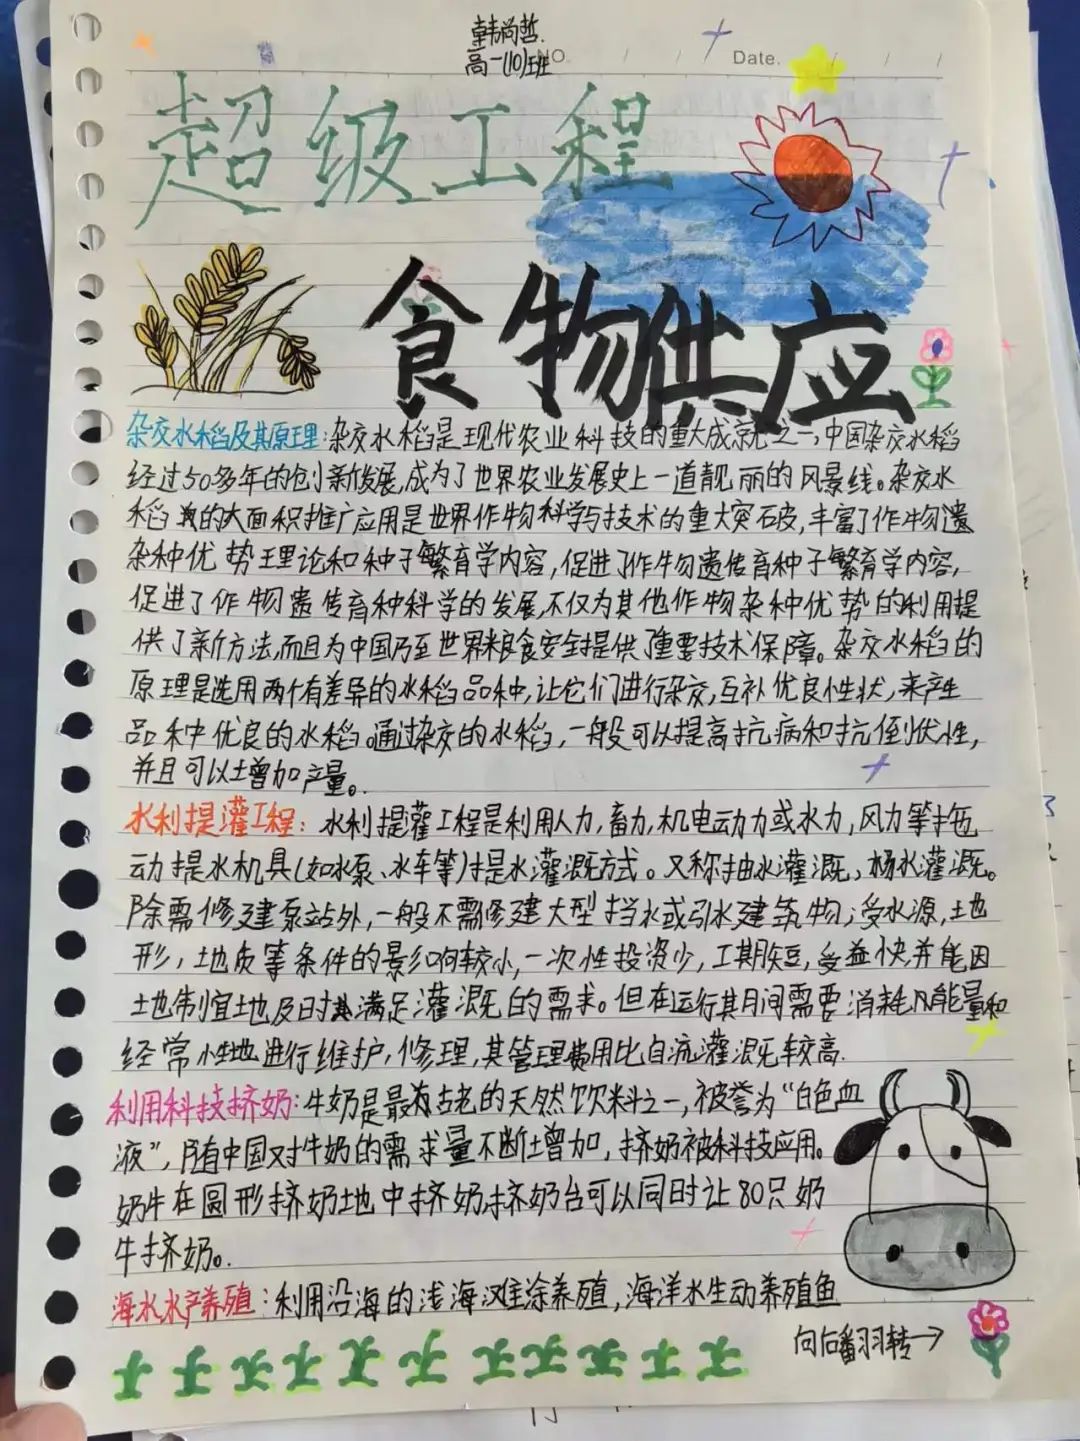 韩尚哲.
高一(10)班
NO.
Date.
超级工程
食物供应
杂交水稻及其原理:杂交水稻是现代农业科技的重大成就之一,中国杂交水稻
经过50多年的创新发展,成为了世界农业发展史上一道靓丽的风景线。杂交水
稻的大面积推广应用是世界作物科学与技术的重大突破,丰富了作物遗
杂种优势理论和种子繁育学内容,促进了作物遗传育种子繁育学内容,
促进了作物遗传育种科学的发展,不仅为其他作物杂种优势的利用提
供了新方法,而且为中国乃至世界粮食安全提供了重要技术保障。杂交水稻的
原理是选用两个有差异的水稻品种,让它们进行杂交,互补优良性状,来产生
品种优良的水稻。通过杂交的水稻,一般可以提高抗病和抗倒伏性,
并且可以增加产量。
水利提灌工程:水利提灌工程是利用人力,畜力,机电动力或水力,风力等拖
动提水机具(如水泵、水车等)提水灌溉方式。又称抽水灌溉、扬水灌溉。
除需修建泵站外,一般不需修建大型挡水或引水建筑物;受水源,土地
形,土地质等条件的影响较小,一次性投资少,工期短,受益快,并能因
土地制宜地及时满足灌溉的需求。但在运行其月间需要消耗能量和
经常性地进行维护,修理,其管理费用比自流灌溉较高.
利用科技挤奶:牛奶是最古老的天然饮料之一,被誉为“白色血
液”,随中国对牛奶的需求量不断增加,挤奶被科技应用。
奶牛在圆形挤奶地中挤奶,挤奶台可以同时让80只奶
牛挤奶。
海水水产养殖:利用沿海的浅海滩涂养殖,海洋水生动养殖鱼
向后翻羽转→